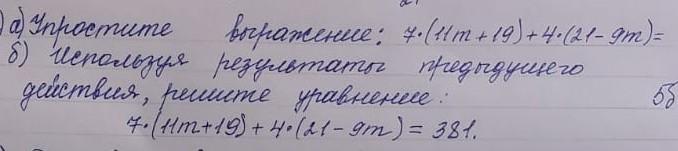 а) Упростите выражение: 7·(11m+19)+4·(21-9m)=
б) Используя результаты предыдущего
действия, решите уравнение: 5б
7·(11m+19)+4·(21-9m)=381.